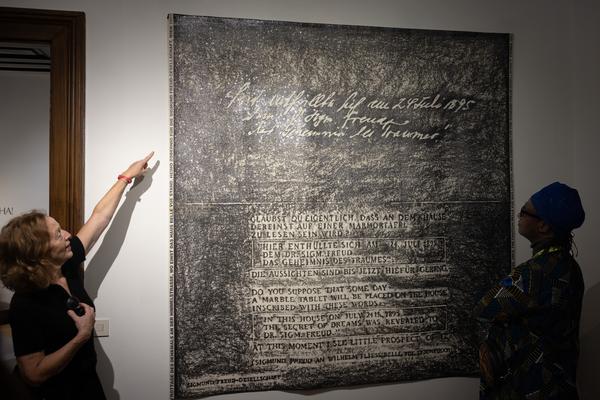 HA!
"Hier enthüllte sich am 24. Juli 1895
dem Dr. Sigm. Freud
das Geheimnis des Traumes."
GLAUBST DU EIGENTLICH, DASS AN DEM HAUSE
DEREINST AUF EINER MARMORTAFEL
ZU LESEN SEIN WIRD?:
"HIER ENTHÜLLTE SICH AM 24. JULI 1895
DEM DR. SIGM. FREUD
DAS GEHEIMNIS DES TRAUMES."
DIE AUSSICHTEN SIND BIS JETZT HIEFÜR GERING.
DO YOU SUPPOSE THAT SOME DAY
A MARBLE TABLET WILL BE PLACED ON THE HOUSE,
INSCRIBED WITH THESE WORDS:
"IN THIS HOUSE ON JULY 24TH, 1895
THE SECRET OF DREAMS WAS REVEALED TO
DR. SIGM. FREUD"
AT THIS MOMENT I SEE LITTLE PROSPECT OF IT.
(SIGMUND FREUD AN WILHELM FLIESS, BELLE VUE,
SIGMUND FREUD-GESELLSCHAFT